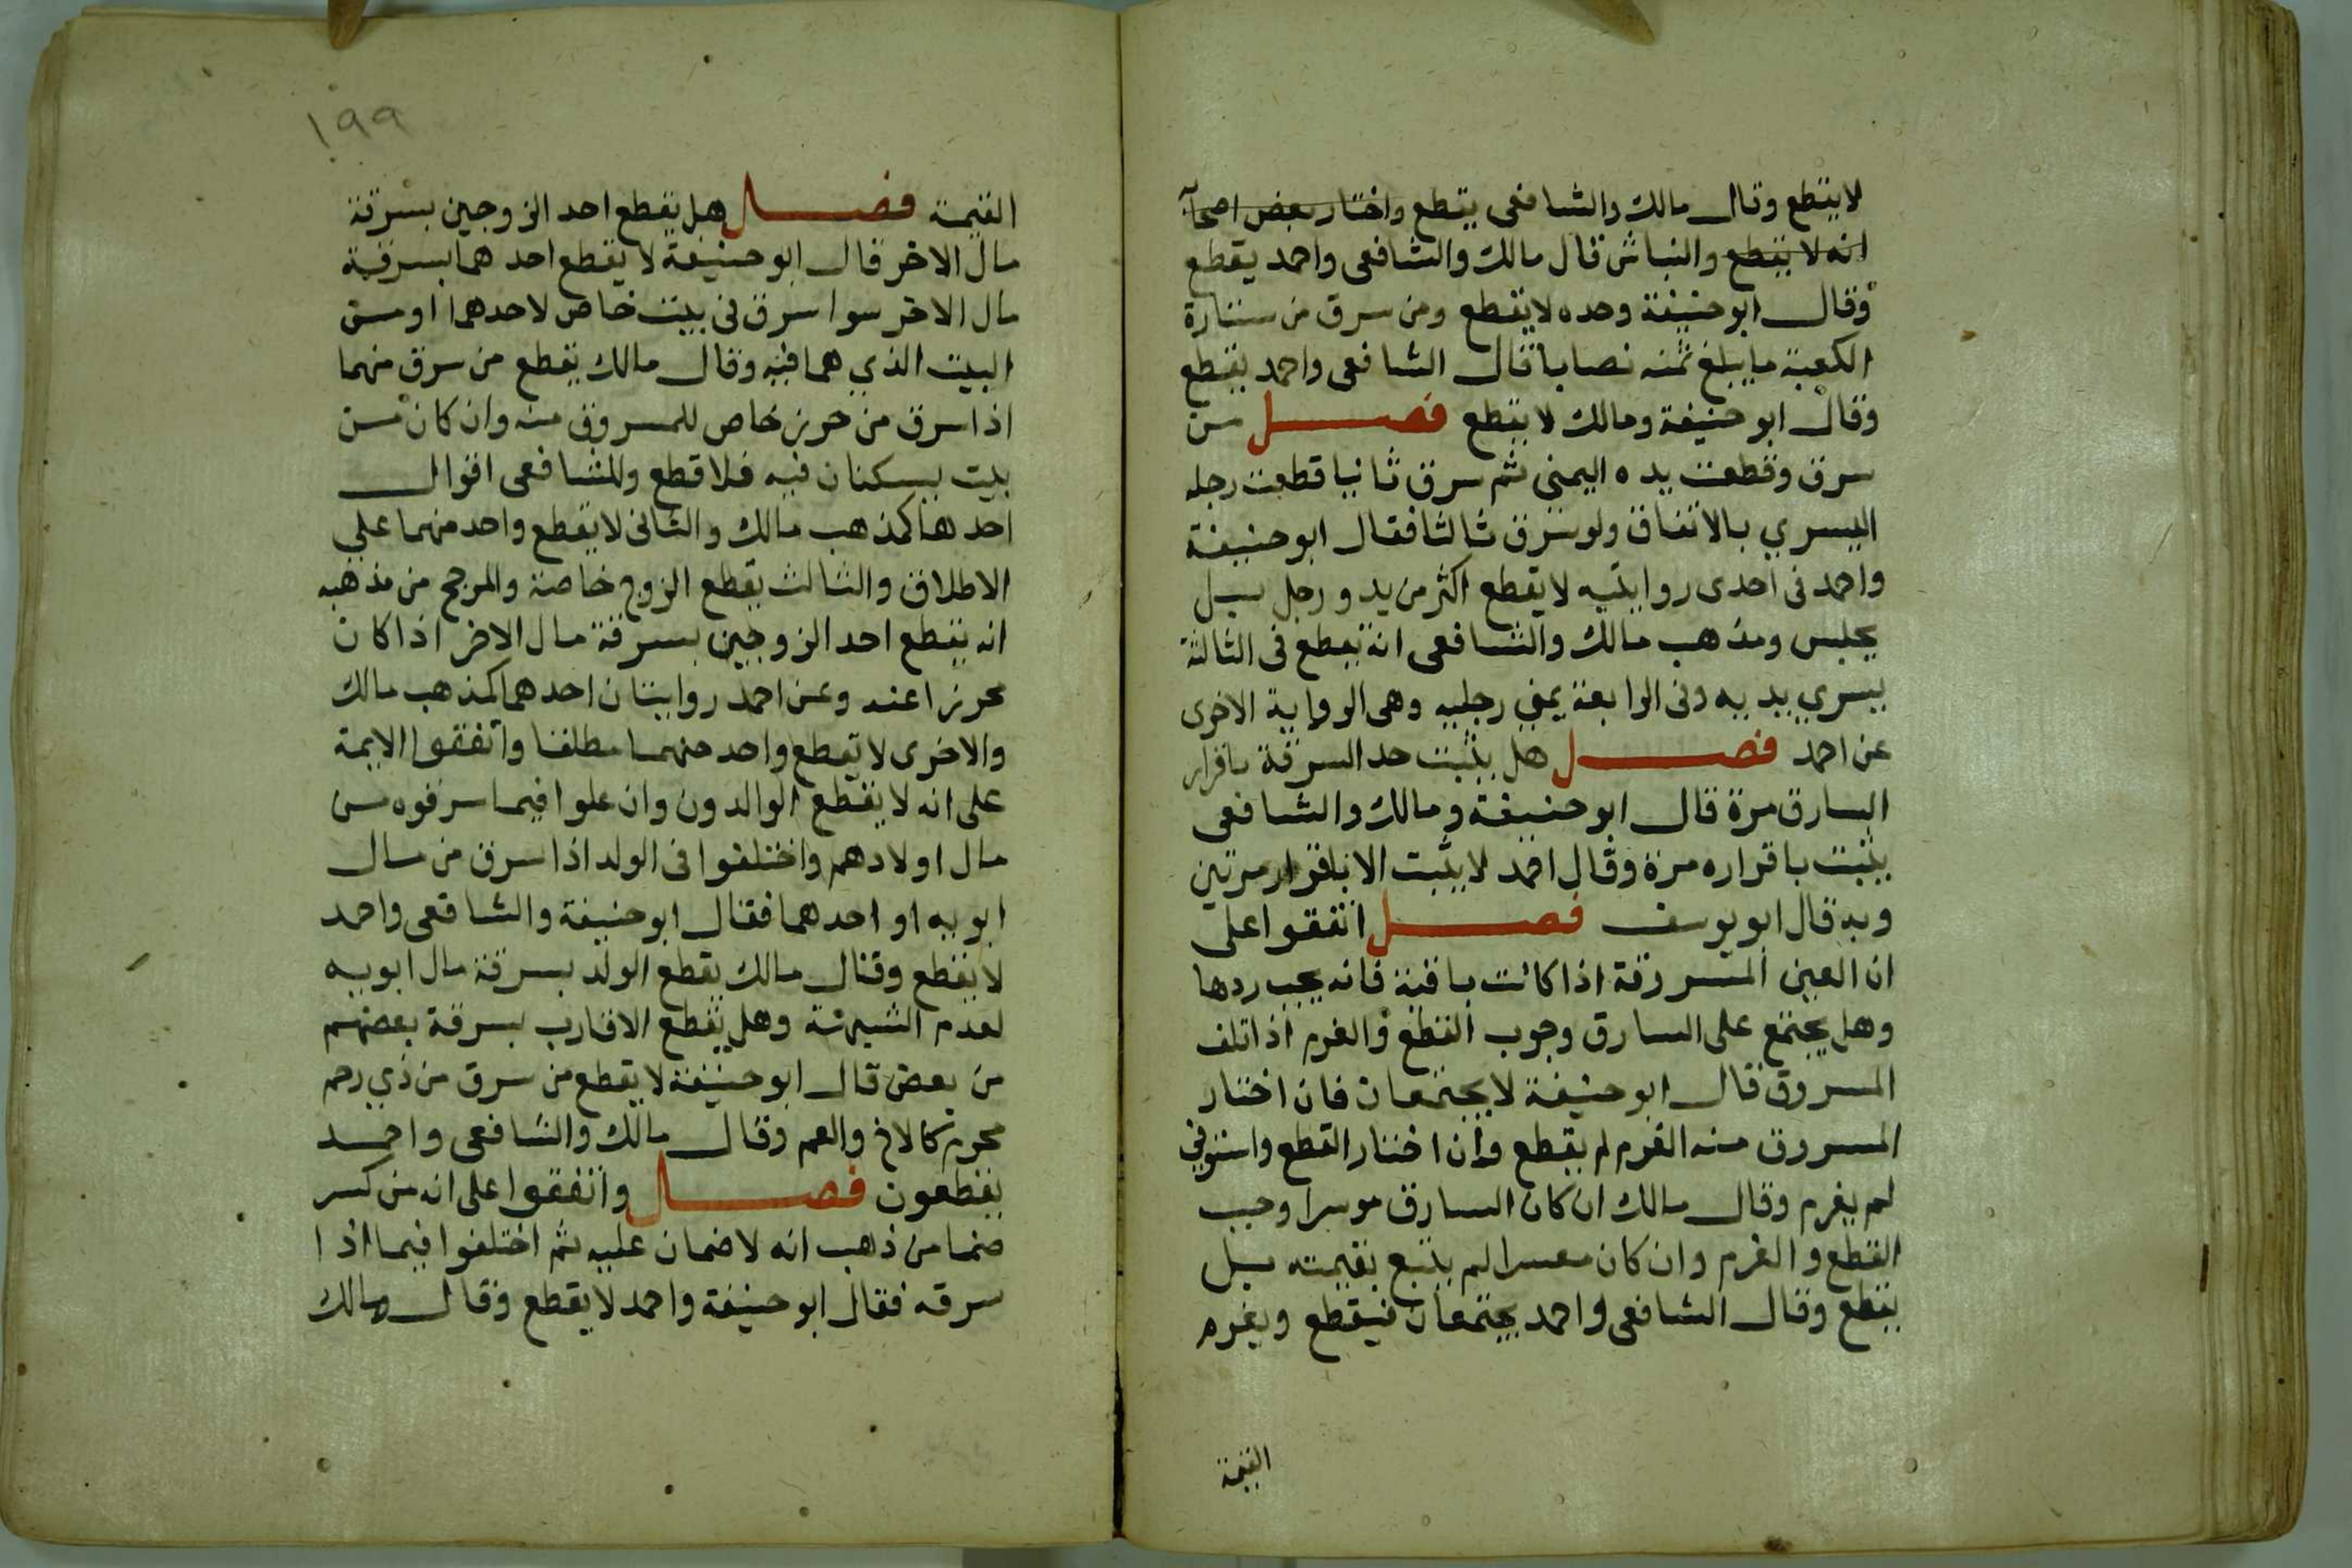 لا يقطع وقال مالك والشافعى يقطع واختار بعض اصحآ
انه لا يقطع والنباش قال مالك والشافعى واحمد يقطع
وقال ابو حنيفة وحده لا يقطع ومن سرق من ستارة
الكعبة ما يبلغ ثمنه نصابا قال الشافعى واحمد يقطع
وقال ابو حنيفة ومالك لا يقطع فصل من
سرق وقطعت يده اليمنى ثم سرق ثانيا قطعت رجله
اليسري بالاتفاق ولو سرق ثالثا فقال ابو حنيفة
واحمد فى احدى روايتيه لا يقطع اكثر من يد ورجل بل
يحبس ومذهب مالك والشافعى انه يقطع فى الثالثة
يسري يديه وفى الرابعة يمني رجليه وهى الرواية الاخرى
عن احمد فصل هل يثبت حد السرقة باقرار
السارق مرة قال ابو حنيفة ومالك والشافعى
يثبت باقراره مرة وقال احمد لا يثبت الا باقرار مرتين
وبه قال ابو يوسف فصل اتفقوا على
ان العين المسروقة اذا كانت باقية فانه يجب ردها
وهل يجتمع على السارق وجوب القطع والغرم اذا تلف
المسروق قال ابو حنيفة لا يجتمعان فان اختار
المسروق منه الغرم لم يقطع وان اختار القطع واستوفي
لم يغرم وقال مالك ان كان السارق موسرا وجب
القطع والغرم وان كان معسرا لم يتبع بقيمته بل
يقطع وقال الشافعى واحمد يجتمعان فيقطع ويغرم
القيمة
١٩٩
القيمة فصل هل يقطع احد الزوجين بسرقة
مال الاخر قال ابو حنيفة لا يقطع احدهما بسرقة
مال الاخر سوا سرق فى بيت خاص لاحدهما او من
البيت الذي هما فيه وقال مالك يقطع من سرق منهما
اذا سرق من حرز خاص للمسروق منه وان كان من
بيت يسكنان فيه فلا قطع وللشافعى اقوال
احدها كمذهب مالك والثانى لا يقطع واحد منهما علي
الاطلاق والثالث يقطع الزوج خاصة والمرجح من مذهبه
انه يقطع احد الزوجين بسرقة مال الاخر اذا كان
محرزا عنه وعن احمد روايتان احدهما كمذهب مالك
والاخرى لا يقطع واحد منهما مطلقا واتفقوا الايمة
على انه لا يقطع الوالدون وان علوا فيما سرقوه من
مال اولادهم واختلفوا فى الولد اذا سرق من مال
ابويه او احدهما فقال ابو حنيفة والشافعى واحمد
لا يقطع وقال مالك يقطع الولد بسرقة مال ابويه
لعدم الشبهة وهل يقطع الاقارب بسرقة بعضهم
من بعض قال ابو حنيفة لا يقطع من سرق من ذي رحم
محرم كالاخ والعم وقال مالك والشافعى واحمد
يقطعون فصل واتفقوا على انه من كسر
صنما من ذهب انه لا ضمان عليه ثم اختلفوا فيما اذا
سرقه فقال ابو حنيفة واحمد لا يقطع وقال مالك